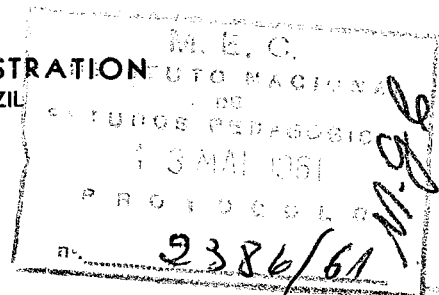 STRATION
ZIL
M. E. C.
TUTO NACIONA
DE
TUDOS PEDAGOGICO
13 MAI 1961
PROTOCOLO
nº. 2386/61